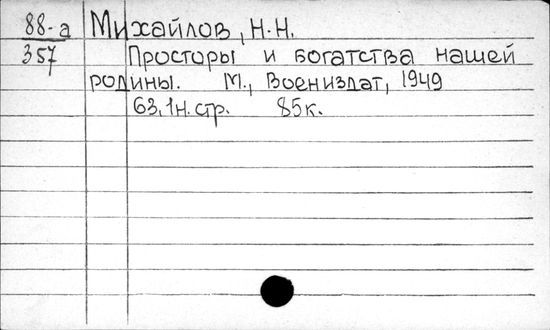 88-а Михайлов, Н.Н.
357 Просторы и богатства нашей
родины. М., Воениздат, 1949
63,1н.стр. 85к.